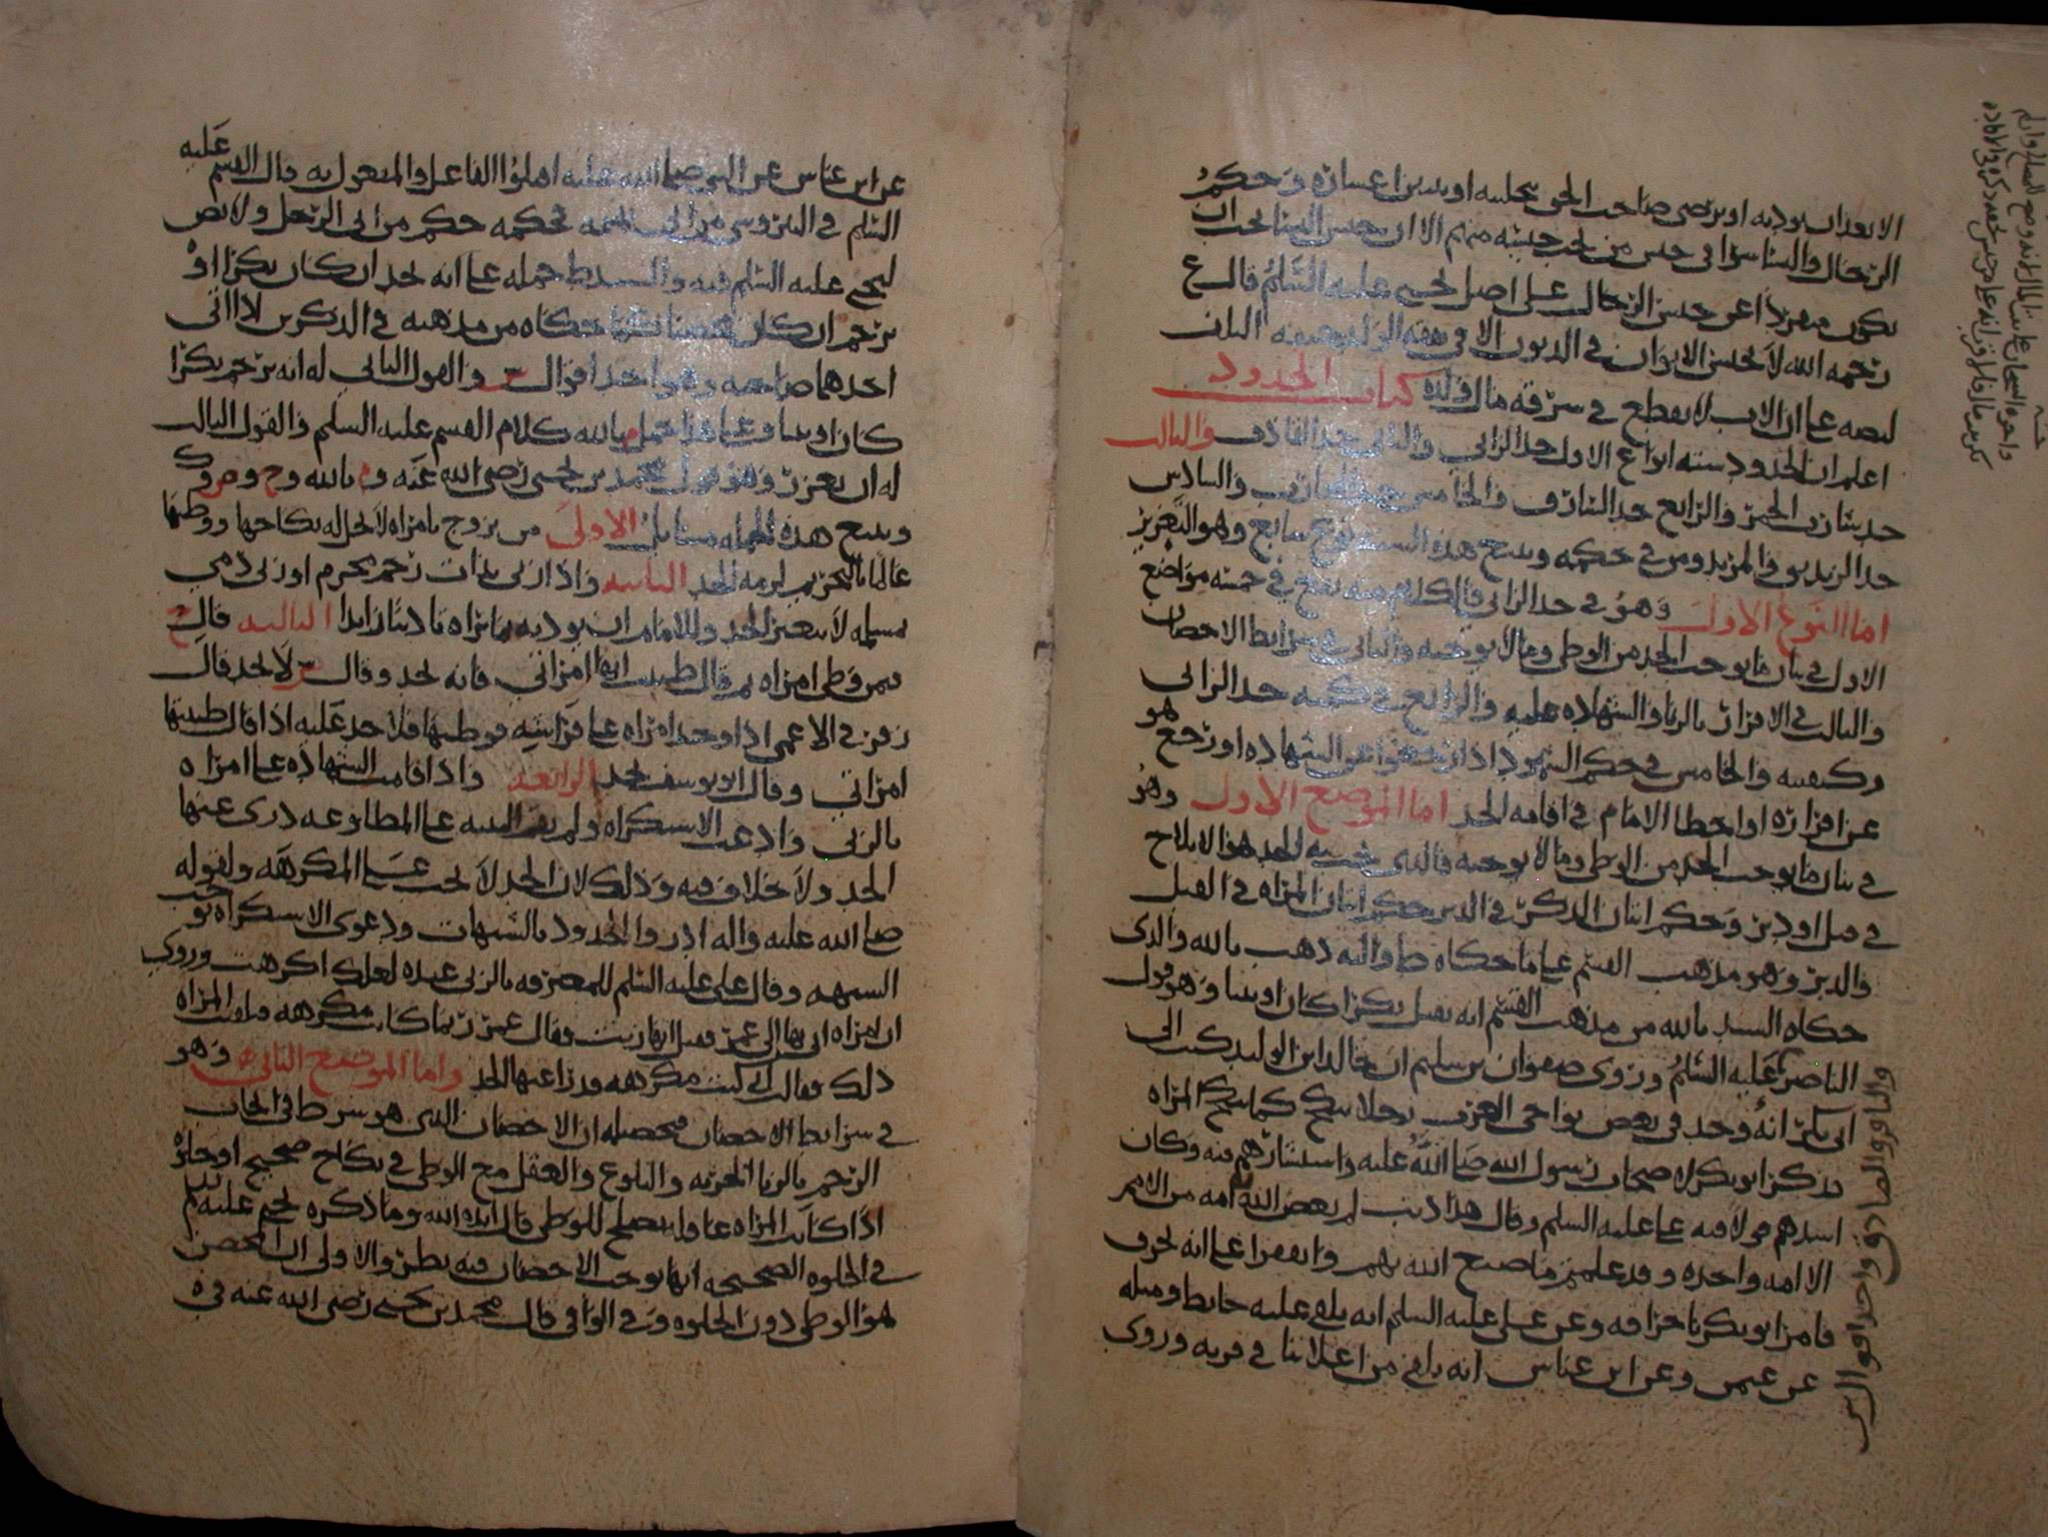 الا بعد ان يوديه او يرضى صاحب الحق بتخليته او يتبين اعساره وحكم
الرجال والنسا سوا في حبس من يجب حبسه منهم الا ان حبس النسا يجب ان
يكون منفردا عن حبس الرجال على اصل يحيى عليه السلم قال ع
رحمه الله لا يحبس الابوان في الديون الا في نفقه الولد
لنصه على ان الاب لا يقطع في سرقه مال ولده كتاب الحدود
اعلم ان الحدود سته انواع الاول حد الزاني والثاني حد القاذف والثالث
حد شارب الخمر والرابع حد السارق والخامس حد المحارب والسادس
حد الزنديق والمرتد ومن في حكمه ويتبع هذه السته نوع سابع وهو التعزير
اما النوع الاول وهو في حد الزاني فالكلام منه يقع في خمسه مواضع
الاول في بيان ما يوجب الحد من الوطي وما لا يوجبه والثاني في شرايط الاحصان
والثالث في الاقرار بالزنا والشهاده عليه والرابع في كميه حد الزاني
وكيفيته والخامس في حكم الشهود اذا رجعوا عن الشهاده او رجع هو
عن اقراره او اخطا الامام في اقامه الحد اما الموضع الاول وهو
في بيان ما يوجب الحد من الوطي وما لا يوجبه فالذي يجب به الحد هو الايلاج
في قبل او دبر وحكم اتيان الذكر في الدبر حكم اتيان المراه في القبل
والدبر وهو مذهب القسم على ما حكاه ط واليه ذهب بالله والذي
حكاه السيد بالله من مذهب القسم انه يقتل بكرا كان او ثيبا وهو قول
الناصر عليه السلم وروى صفوان بن سليم ان خالد ابن الوليد كتب الى
ابي بكر انه وجد في بعض نواحي العرب رجلا ينكح كما تنكح المراه
فذكر ابو بكر لاصحاب رسول الله صلى الله عليه واستشارهم فيه وكان
اشدهم قولا فيه على عليه السلم وقال هذا ذنب لم يعص الله به امه من الامم
الا امه واحده وقد علمتم ما صنع الله بهم واتفقوا على انه يحرق
فامر ابو بكر باحراقه وعن على عليه السلم انه يلقى عليه حايط ومثله
عن عمر وعن ابن عباس انه يلقى من اعلا بنا في قريه وروى
والباقر والصادق واحد اقوال ش
عن ابن عباس عن النبي صلى الله عليه اقتلوا الفاعل والمفعول به قال القسم عليه
السلم في فحكمه حكم من اتى الرجل ولا نص
ليحيى عليه السلم فيه والسيد ط حمله على انه يحد ان كان بكرا او
يرجم ان كان محصنا كما حكاه من مذهبه في الذكرين اذا اتى
احدهما صاحبه وهو احد اقوال ش والقول الثاني له انه يرجم بكرا
كان او ثيبا وعلى هذا حمل م بالله كلام القسم عليه السلم والقول الثالث
له ان يعزر وهو قول محمد بن يحيى رضى الله عنه و م بالله و ح و ص و ك
ويتبع هذه الجمله مسايل الاولى من تزوج بامراه لا يحل له نكاحها ووطئها
عالما بالتحريم لزمه الحد الثانيه واذا زنى بذات رحم محرم او زنى ذمي
بمسلمه لا يتغير الحد وللامام ان يوديه بما يراه تاديبا زايدا الثالثه قال ح
فيمن وطى امراه ثم قال ظننت انها امراتي فانه يحد وقال ش لا يحد قال
زفر في الاعمى اذا وجد امراه على فراشه فوطئها فلا حد عليه اذا قال ظننتها
امراتي وقال ابو يوسف يحد الرابعه واذا قامت الشهاده على امراه
بالزنى وادعت الاستكراه ولم تقم البينه على المطاوعه درى عنها
الحد ولا خلاف فيه وذلك لان الحد لا يجب على المكرهه ولقوله
صلى الله عليه واله ادروا الحدود بالشبهات ودعوى الاستكراه توجب
الشبهه وقال على عليه السلم للمعترفه بالزنى عنده لعلك اكرهت وروي
ان امراه اتي بها الى عمر فقيل انها زنت فقال عمر ربما كانت مكرهه فقالت المراه
ذلك فقالت اني كنت مكرهه فدرا عنها الحد واما الموضع الثاني وهو
في شرايط الاحصان فمحصله ان الاحصان الذي هو شرط في ايجاب
الرجم بالزنا الحريه والبلوغ والعقل مع الوطي في نكاح صحيح او جايز
اذا كانت المراه عاقله تصلح للوطي قال ايده الله وما ذكره يحيى عليه السلم
في الخلوه الصحيحه انها توجب الاحصان فيه نظر والاولى ان المحصن
هو الوطي دون الخلوه وفي الوافي قال محمد بن يحيى رضى الله عنه في